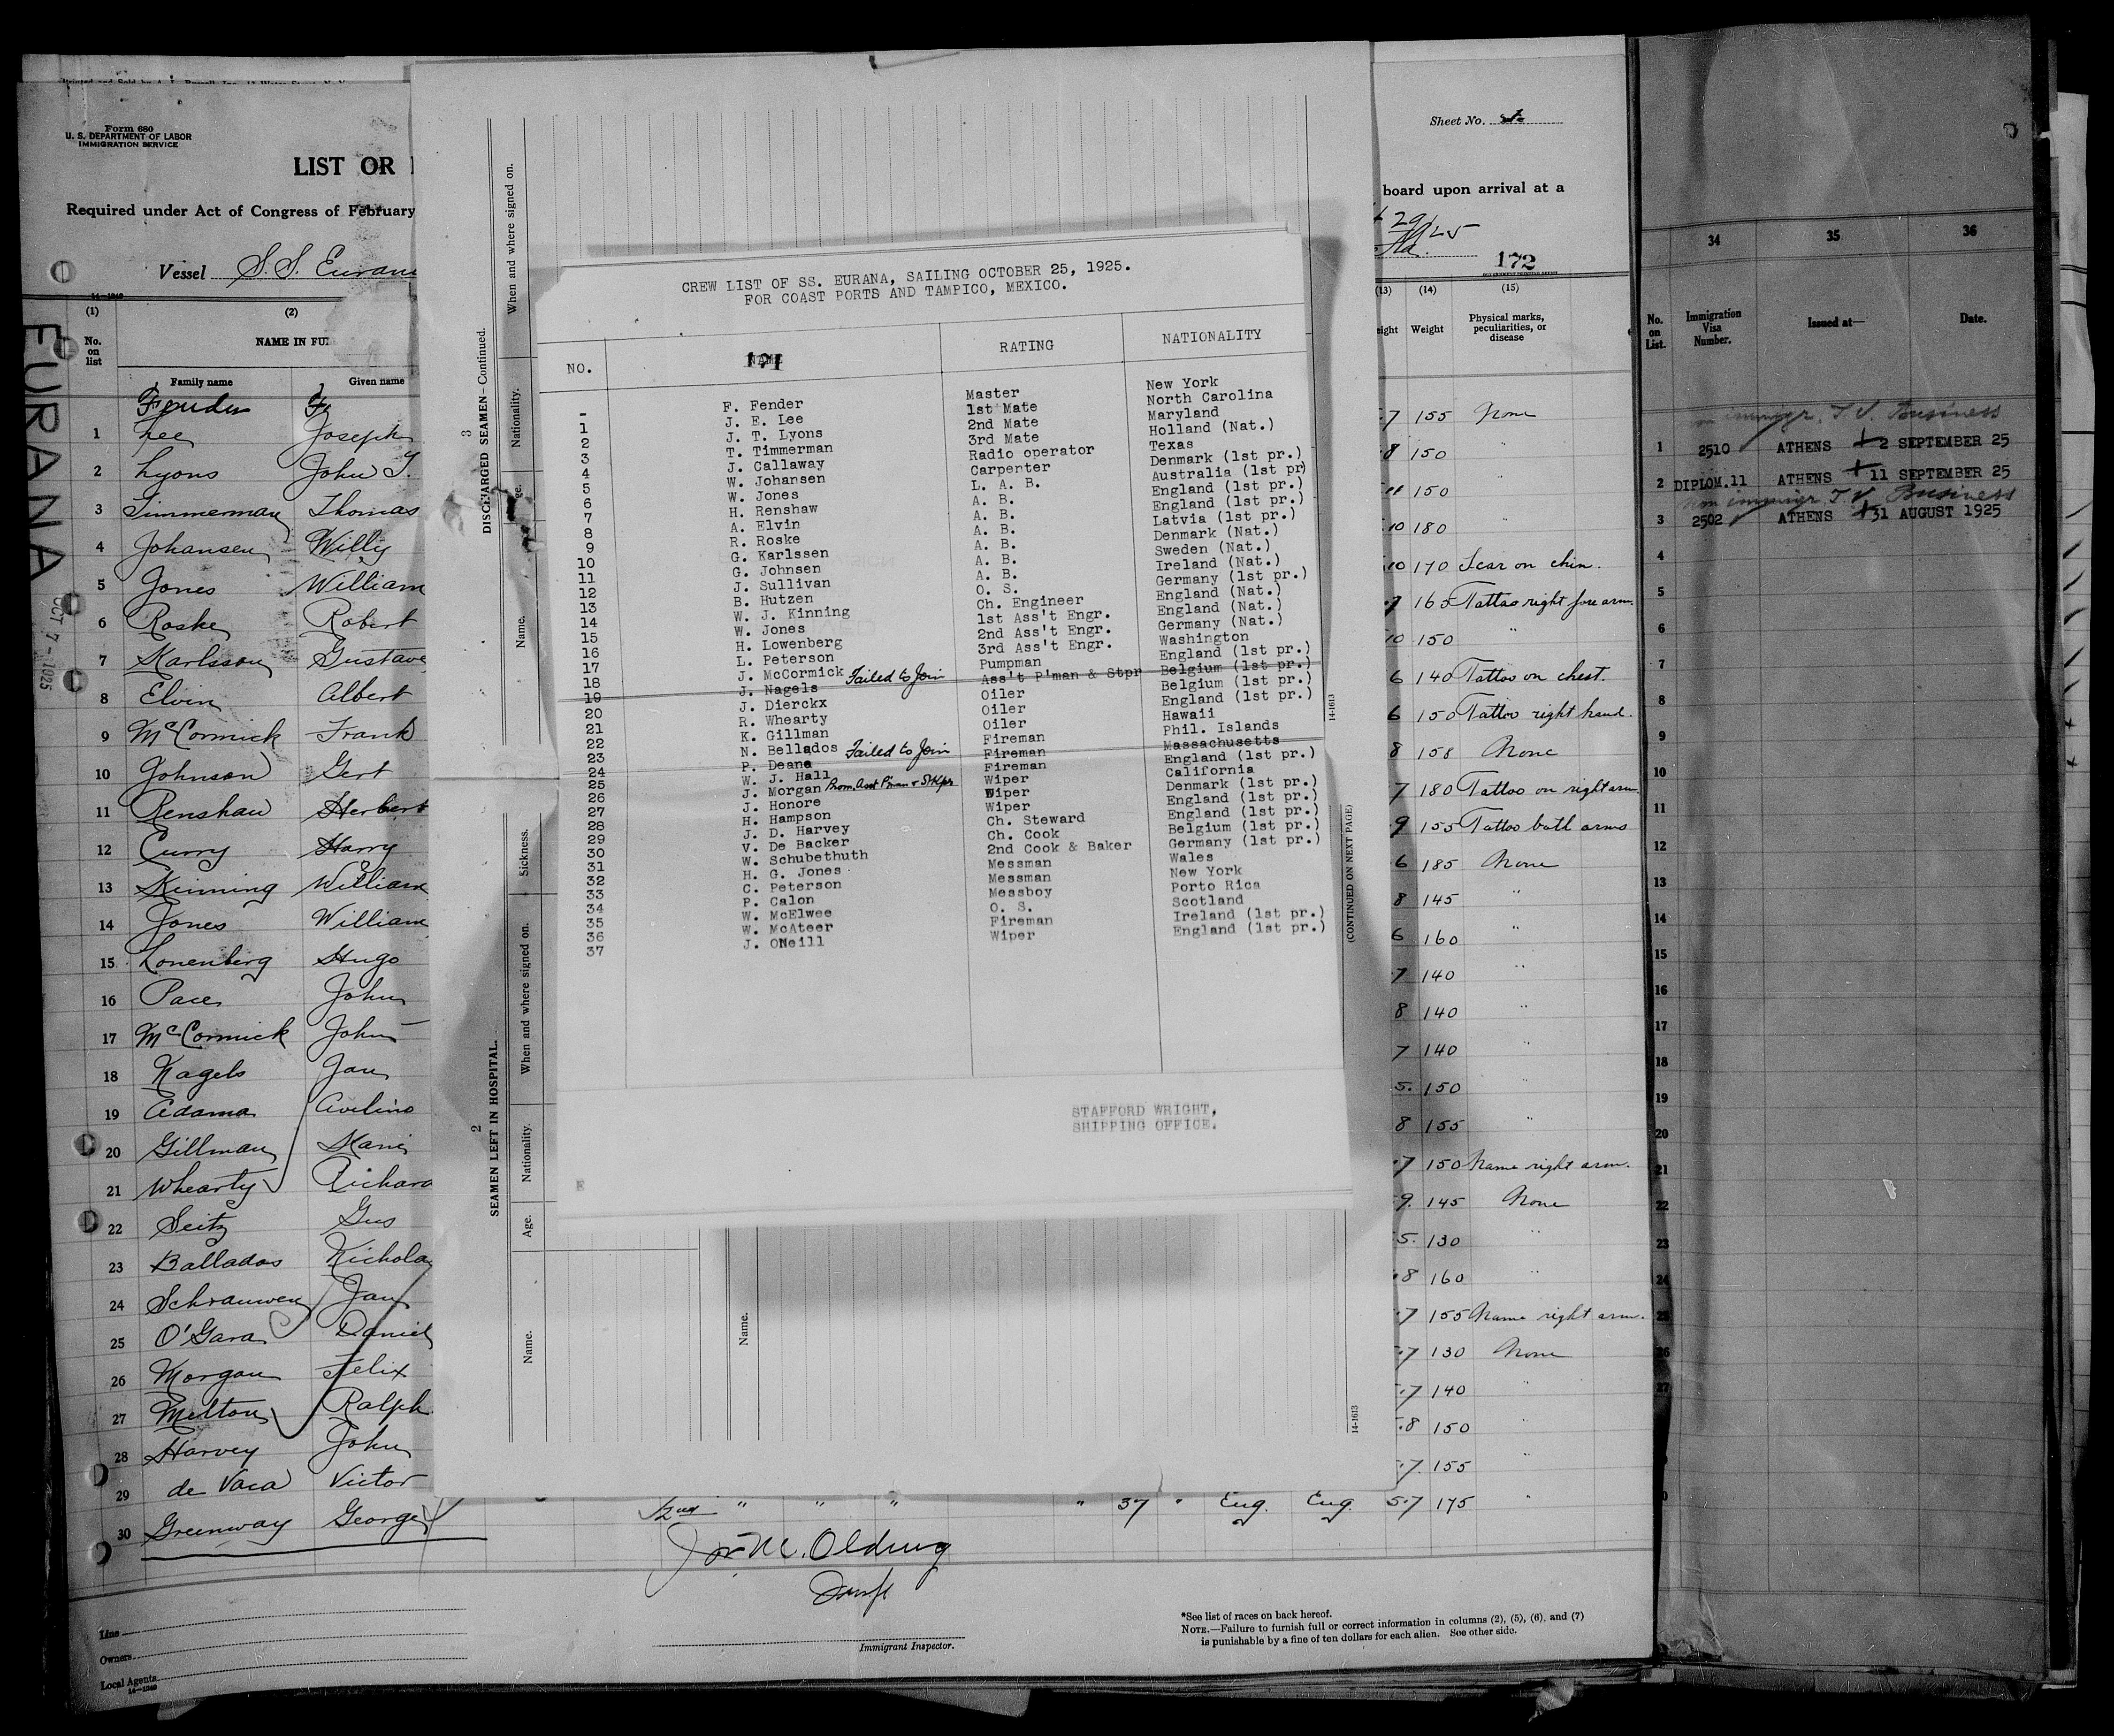 Form 680
U. S. DEPARTMENT OF LABOR
IMMIGRATION SERVICE
LIST OR
Required under Act of Congress of February
Vessel S.S. Eurana
EURANA
OCT 7 - 1925
(1) (2)
No. on list
NAME IN FUL
Family name Given name
Fender F.
1 Lee Joseph
2 Lyons John T.
3 Timmerman Thomas
4 Johansen Willy
5 Jones William
6 Roske Robert
7 Karlsson Gustave
8 Elvin Albert
9 McCormick Frank
10 Johnson Gert
11 Renshaw Herbert
12 Curry Harry
13 Kinning William
14 Jones William
15 Lonenberg Hugo
16 Pace John
17 McCormick John
18 Nagels Jan
19 Adama Avelino
20 Gillman Kani
21 Whearty Richard
22 Seitz Gus
23 Ballados Nicholas
24 Schrauwen Jan
25 O'Gara Daniel
26 Morgan Felix
27 Melton Ralph
28 Harvey John
29 de Vaca Victor
30 Greenway George
Line
Owners
Local Agents
14-1240
3
DISCHARGED SEAMEN-Continued.
Name. Age. Nationality. When and where signed on.
2
SEAMEN LEFT IN HOSPITAL.
Name. Age. Nationality. When and where signed on. Sickness.
Name.
CREW LIST OF SS. EURANA, SAILING OCTOBER 25, 1925.
FOR COAST PORTS AND TAMPICO, MEXICO.
NO. NAME RATING NATIONALITY
171
- F. Fender Master New York
1 J. E. Lee 1st Mate North Carolina
2 J. T. Lyons 2nd Mate Maryland
3 T. Timmerman 3rd Mate Holland (Nat.)
4 J. Callaway Radio operator Texas
5 W. Johansen Carpenter Denmark (1st pr.)
6 W. Jones L. A. B. Australia (1st pr)
7 H. Renshaw A. B. England (1st pr.)
8 A. Elvin A. B. England (1st pr.)
9 R. Roske A. B. Latvia (1st pr.)
10 G. Karlssen A. B. Denmark (Nat.)
11 G. Johnsen A. B. Sweden (Nat.)
12 J. Sullivan A. B. Ireland (Nat.)
13 B. Hutzen O. S. Germany (1st pr.)
14 W. J. Kinning Ch. Engineer England (Nat.)
15 W. Jones 1st Ass't Engr. England (Nat.)
16 H. Lowenberg 2nd Ass't Engr. Germany (Nat.)
17 L. Peterson 3rd Ass't Engr. Washington
18 J. McCormick Pumpman England (1st pr.)
19 J. Nagels Failed to Join Ass't P'man & Stpr Belgium (1st pr.)
20 J. Dierckx Oiler Belgium (1st pr.)
21 R. Whearty Oiler England (1st pr.)
22 K. Gillman Oiler Hawaii
23 N. Bellados Fireman Phil. Islands
24 P. Deane Failed to Join Fireman Massachusetts
25 W. J. Hall Fireman England (1st pr.)
26 J. Morgan Prom. Asst P'man & StKpr Wiper California
27 J. Honore Wiper Denmark (1st pr.)
28 H. Hampson Wiper England (1st pr.)
29 J. D. Harvey Ch. Steward England (1st pr.)
30 V. De Backer Ch. Cook Belgium (1st pr.)
31 W. Schubethuth 2nd Cook & Baker Germany (1st pr.)
32 H. G. Jones Messman Wales
33 C. Peterson Messman New York
34 P. Calon Messboy Porto Rica
35 W. McElwee O. S. Scotland
36 W. McAteer Fireman Ireland (1st pr.)
37 J. ONeill Wiper England (1st pr.)
STAFFORD WRIGHT,
SHIPPING OFFICE.
E
14-1613
(CONTINUED ON NEXT PAGE)
14-1613
2nd " " " " 37 " Eng. Eng. 5.7 175 "
Immigrant Inspector.
*See list of races on back hereof.
NOTE.—Failure to furnish full or correct information in columns (2), (5), (6), and (7)
is punishable by a fine of ten dollars for each alien. See other side.
Sheet No.
board upon arrival at a
29
1925
172
(13) (14) (15)
eight Weight Physical marks, peculiarities, or disease
7 155 None
8 150 "
11 150 "
10 180 "
10 170 Scar on chin.
7 165 Tattoo right fore arm.
10 150 "
6 140 Tattoo on chest.
6 150 Tattoo right hand.
8 158 None
7 180 Tattoo on right arm.
9 155 Tattoo both arms
6 185 None
8 145 "
6 160 "
7 140 "
8 140 "
7 140 "
5. 150 "
8 155 "
7 150 Name right arm.
9. 145 None
5. 130 "
8 160 "
7 155 Name right arm.
7 130 None
7 140 "
8 150 "
7. 155 "
34 35 36
No. on List. Immigration Visa Number. Issued at— Date.
non immigr. T.V. Business
1 2510 ATHENS 2 SEPTEMBER 25
2 DIPLOM.11 ATHENS 11 SEPTEMBER 25
non immigr. T.V. Business
3 2502 ATHENS 31 AUGUST 1925
4
5
6
7
8
9
10
11
12
13
14
15
16
17
18
19
20
21
22
23
24
25
26
27